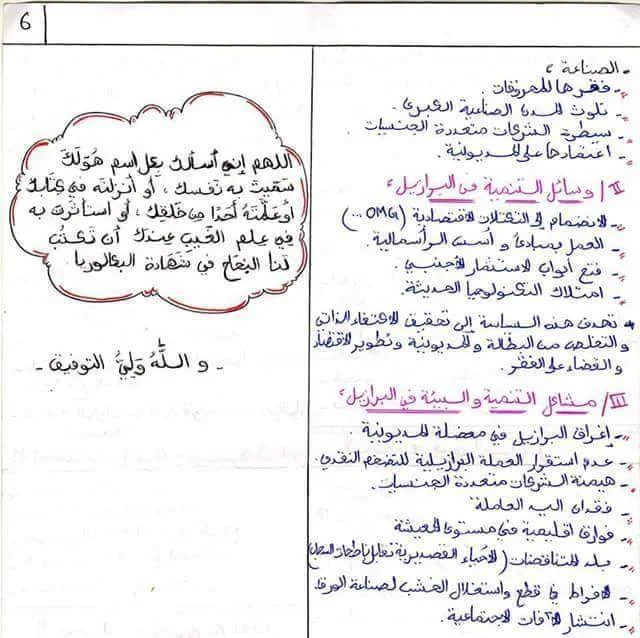 6
- الصناعة :
- فقرها للمحروقات.
- تلوث المدن الصناعية الكبرى
- سيطرة الشركات متعددة الجنسيات.
- اعتمادها على المديونية.
II/ وسائل التنمية في البرازيل:
- الانضمام إلى التكتلات الاقتصادية (OMG ...)
- العمل بمبادئ و أسس الرأسمالية.
- فتح أبواب الاستثمار الأجنبي.
- امتلاك التكنولوجيا الحديثة.
* تهدف هذه السياسة إلى تحقيق الاكتفاء الذاتي
و التخلص من البطالة و المديونية و تطوير الاقتصاد
و القضاء على الفقر.
III/ مشاكل التنمية و البيئة في البرازيل:
- إغراق البرازيل في معضلة المديونية.
- عدم استقرار العملة البرازيلية للتضخم النقدي.
- هيمنة الشركات متعددة الجنسيات.
- فقدان اليد العاملة
- فوارق اقليمية في مستوى المعيشة
- بلد المتناقضات (الأحياء القصديرية تقابل ناطحات السحاب)
- الافراط في قطع واستغلال الخشب لصناعة الورق.
- انتشار الآفات الاجتماعية.
اللهم إني أسألك بكل اسم هو لك
سميت به نفسك، أو أنزلته في كتابك
أو علمته أحدا من خلقك، أو استأثرت به
في علم الغيب عندك أن تكتب
لنا النجاح في شهادة البكالوريا
- و اللّه ولي التوفيق -